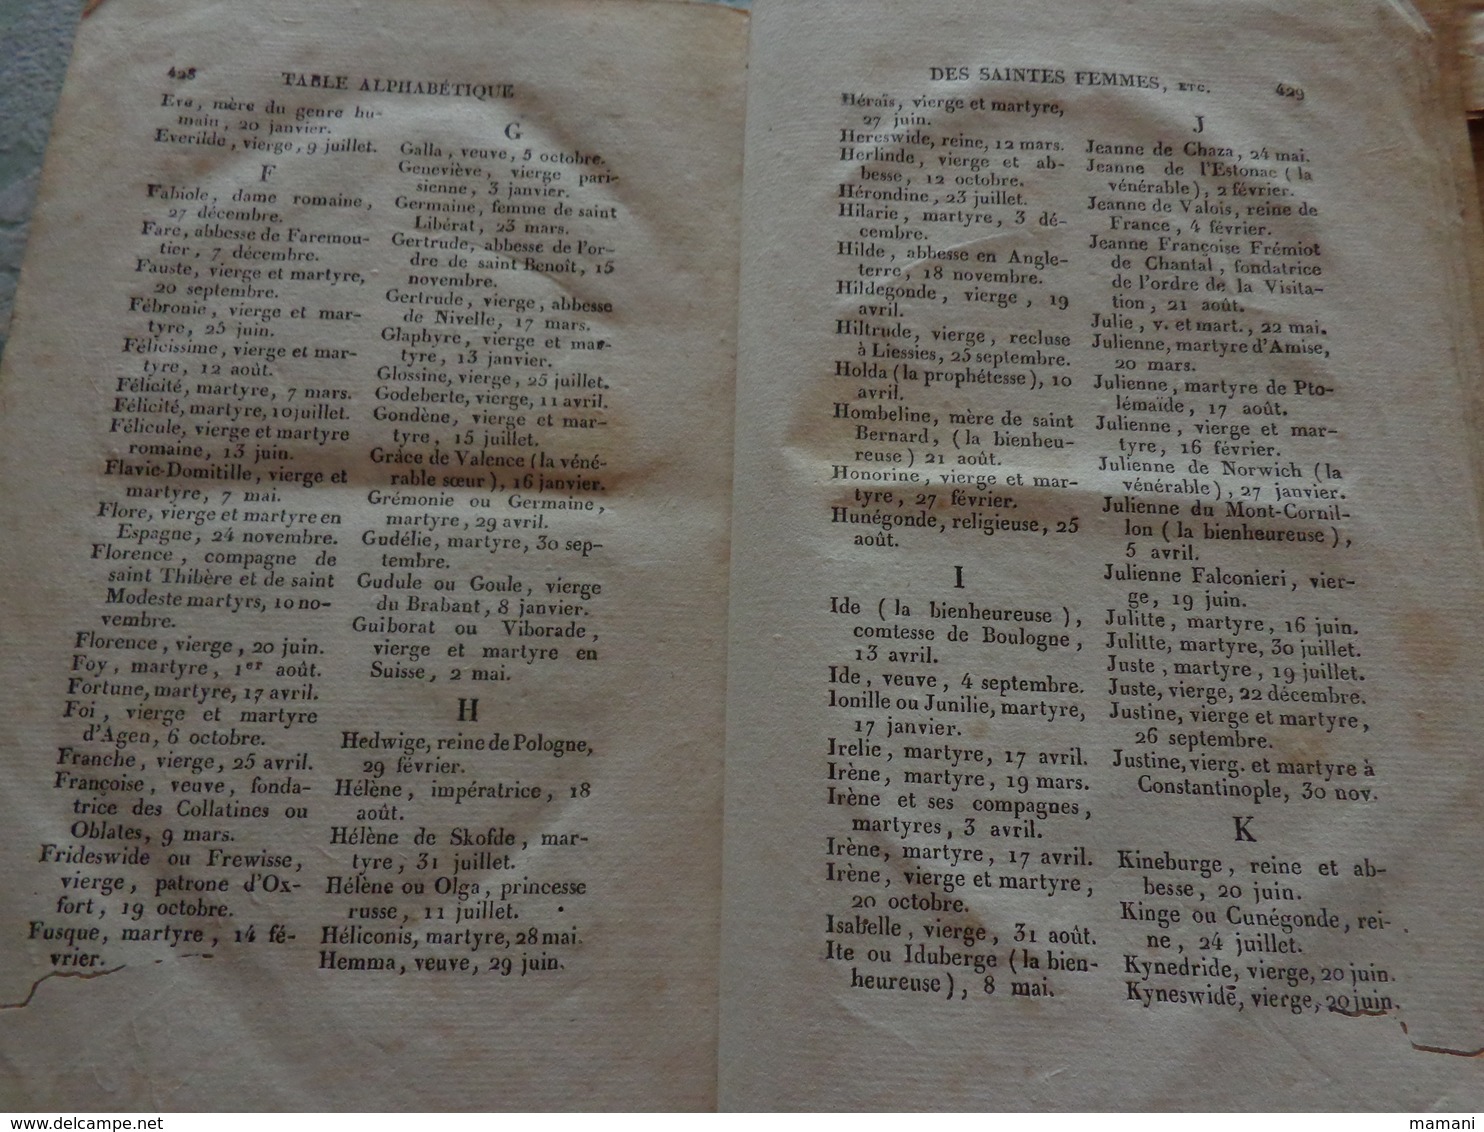 428
TABLE ALPHABÉTIQUE
Eve, mère du genre hu-
main, 20 janvier.
Everilde, vierge, 9 juillet.
F
Fabiole, dame romaine,
27 décembre.
Fare, abbesse de Faremou-
tier, 7 décembre.
Fauste, vierge et martyre,
20 septembre.
Fébronie, vierge et mar-
tyre, 25 juin.
Félicissime, vierge et mar-
tyre, 12 août.
Félicité, martyre, 7 mars.
Félicité, martyre, 10 juillet.
Félicule, vierge et martyre
romaine, 13 juin.
Flavie-Domitille, vierge et
martyre, 7 mai.
Flore, vierge et martyre en
Espagne, 24 novembre.
Florence, compagne de
saint Thibère et de saint
Modeste martyrs, 10 no-
vembre.
Florence, vierge, 20 juin.
Foy, martyre, 1er août.
Fortune, martyre, 17 avril.
Foi, vierge et martyre
d'Agen, 6 octobre.
Franche, vierge, 25 avril.
Françoise, veuve, fonda-
trice des Collatines ou
Oblates, 9 mars.
Frideswide ou Frewisse,
vierge, patrone d'Ox-
fort, 19 octobre.
Fusque, martyre, 14 fé-
vrier.
G
Galla, veuve, 5 octobre.
Geneviève, vierge pari-
sienne, 3 janvier.
Germaine, femme de saint
Libérat, 23 mars.
Gertrude, abbesse de l'or-
dre de saint Benoît, 15
novembre.
Gertrude, vierge, abbesse
de Nivelle, 17 mars.
Glaphyre, vierge et mar-
tyre, 13 janvier.
Glossine, vierge, 25 juillet.
Godeberte, vierge, 11 avril.
Gondène, vierge et mar-
tyre, 15 juillet.
Grâce de Valence (la véné-
rable sœur), 16 janvier.
Grémonie ou Germaine,
martyre, 29 avril.
Gudélie, martyre, 30 sep-
tembre.
Gudule ou Goule, vierge
du Brabant, 8 janvier.
Guiborat ou Viborade,
vierge et martyre en
Suisse, 2 mai.
H
Hedwige, reine de Pologne,
29 février.
Hélène, impératrice, 18
août.
Hélène de Skofde, mar-
tyre, 31 juillet.
Hélène ou Olga, princesse
russe, 11 juillet.
Héliconis, martyre, 28 mai.
Hemma, veuve, 29 juin.
DES SAINTES FEMMES, ETC.
429
Héraïs, vierge et martyre,
27 juin.
Hereswide, reine, 12 mars.
Herlinde, vierge et ab-
besse, 12 octobre.
Hérondine, 23 juillet.
Hilarie, martyre, 3 dé-
cembre.
Hilde, abbesse en Angle-
terre, 18 novembre.
Hildegonde, vierge, 19
avril.
Hiltrude, vierge, recluse
à Liessies, 25 septembre.
Holda (la prophétesse), 10
avril.
Hombeline, mère de saint
Bernard, (la bienheu-
reuse) 21 août.
Honorine, vierge et mar-
tyre, 27 février.
Hunégonde, religieuse, 25
août.
I
Ide (la bienheureuse),
comtesse de Boulogne,
13 avril.
Ide, veuve, 4 septembre.
Ionille ou Junilie, martyre,
17 janvier.
Irelie, martyre, 17 avril.
Irène, martyre, 19 mars.
Irène et ses compagnes,
martyres, 3 avril.
Irène, martyre, 17 avril.
Irène, vierge et martyre,
20 octobre.
Isabelle, vierge, 31 août.
Ite ou Iduberge (la bien-
heureuse), 8 mai.
J
Jeanne de Chaza, 24 mai.
Jeanne de l'Estonac (la
vénérable), 2 février.
Jeanne de Valois, reine de
France, 4 février.
Jeanne Françoise Frémiot
de Chantal, fondatrice
de l'ordre de la Visita-
tion, 21 août.
Julie, v. et mart., 22 mai.
Julienne, martyre d'Amise,
20 mars.
Julienne, martyre de Pto-
lémaïde, 17 août.
Julienne, vierge et mar-
tyre, 16 février.
Julienne de Norwich (la
vénérable), 27 janvier.
Julienne du Mont-Cornil-
lon (la bienheureuse),
5 avril.
Julienne Falconieri, vier-
ge, 19 juin.
Julitte, martyre, 16 juin.
Julitte, martyre, 30 juillet.
Juste, martyre, 19 juillet.
Juste, vierge, 22 décembre.
Justine, vierge et martyre,
26 septembre.
Justine, vierg. et martyre à
Constantinople, 30 nov.
K
Kineburge, reine et ab-
besse, 20 juin.
Kinge ou Cunégonde, rei-
ne, 24 juillet.
Kynedride, vierge, 20 juin.
Kyneswide, vierge, 20 juin.
www.delcampe.net
mamani